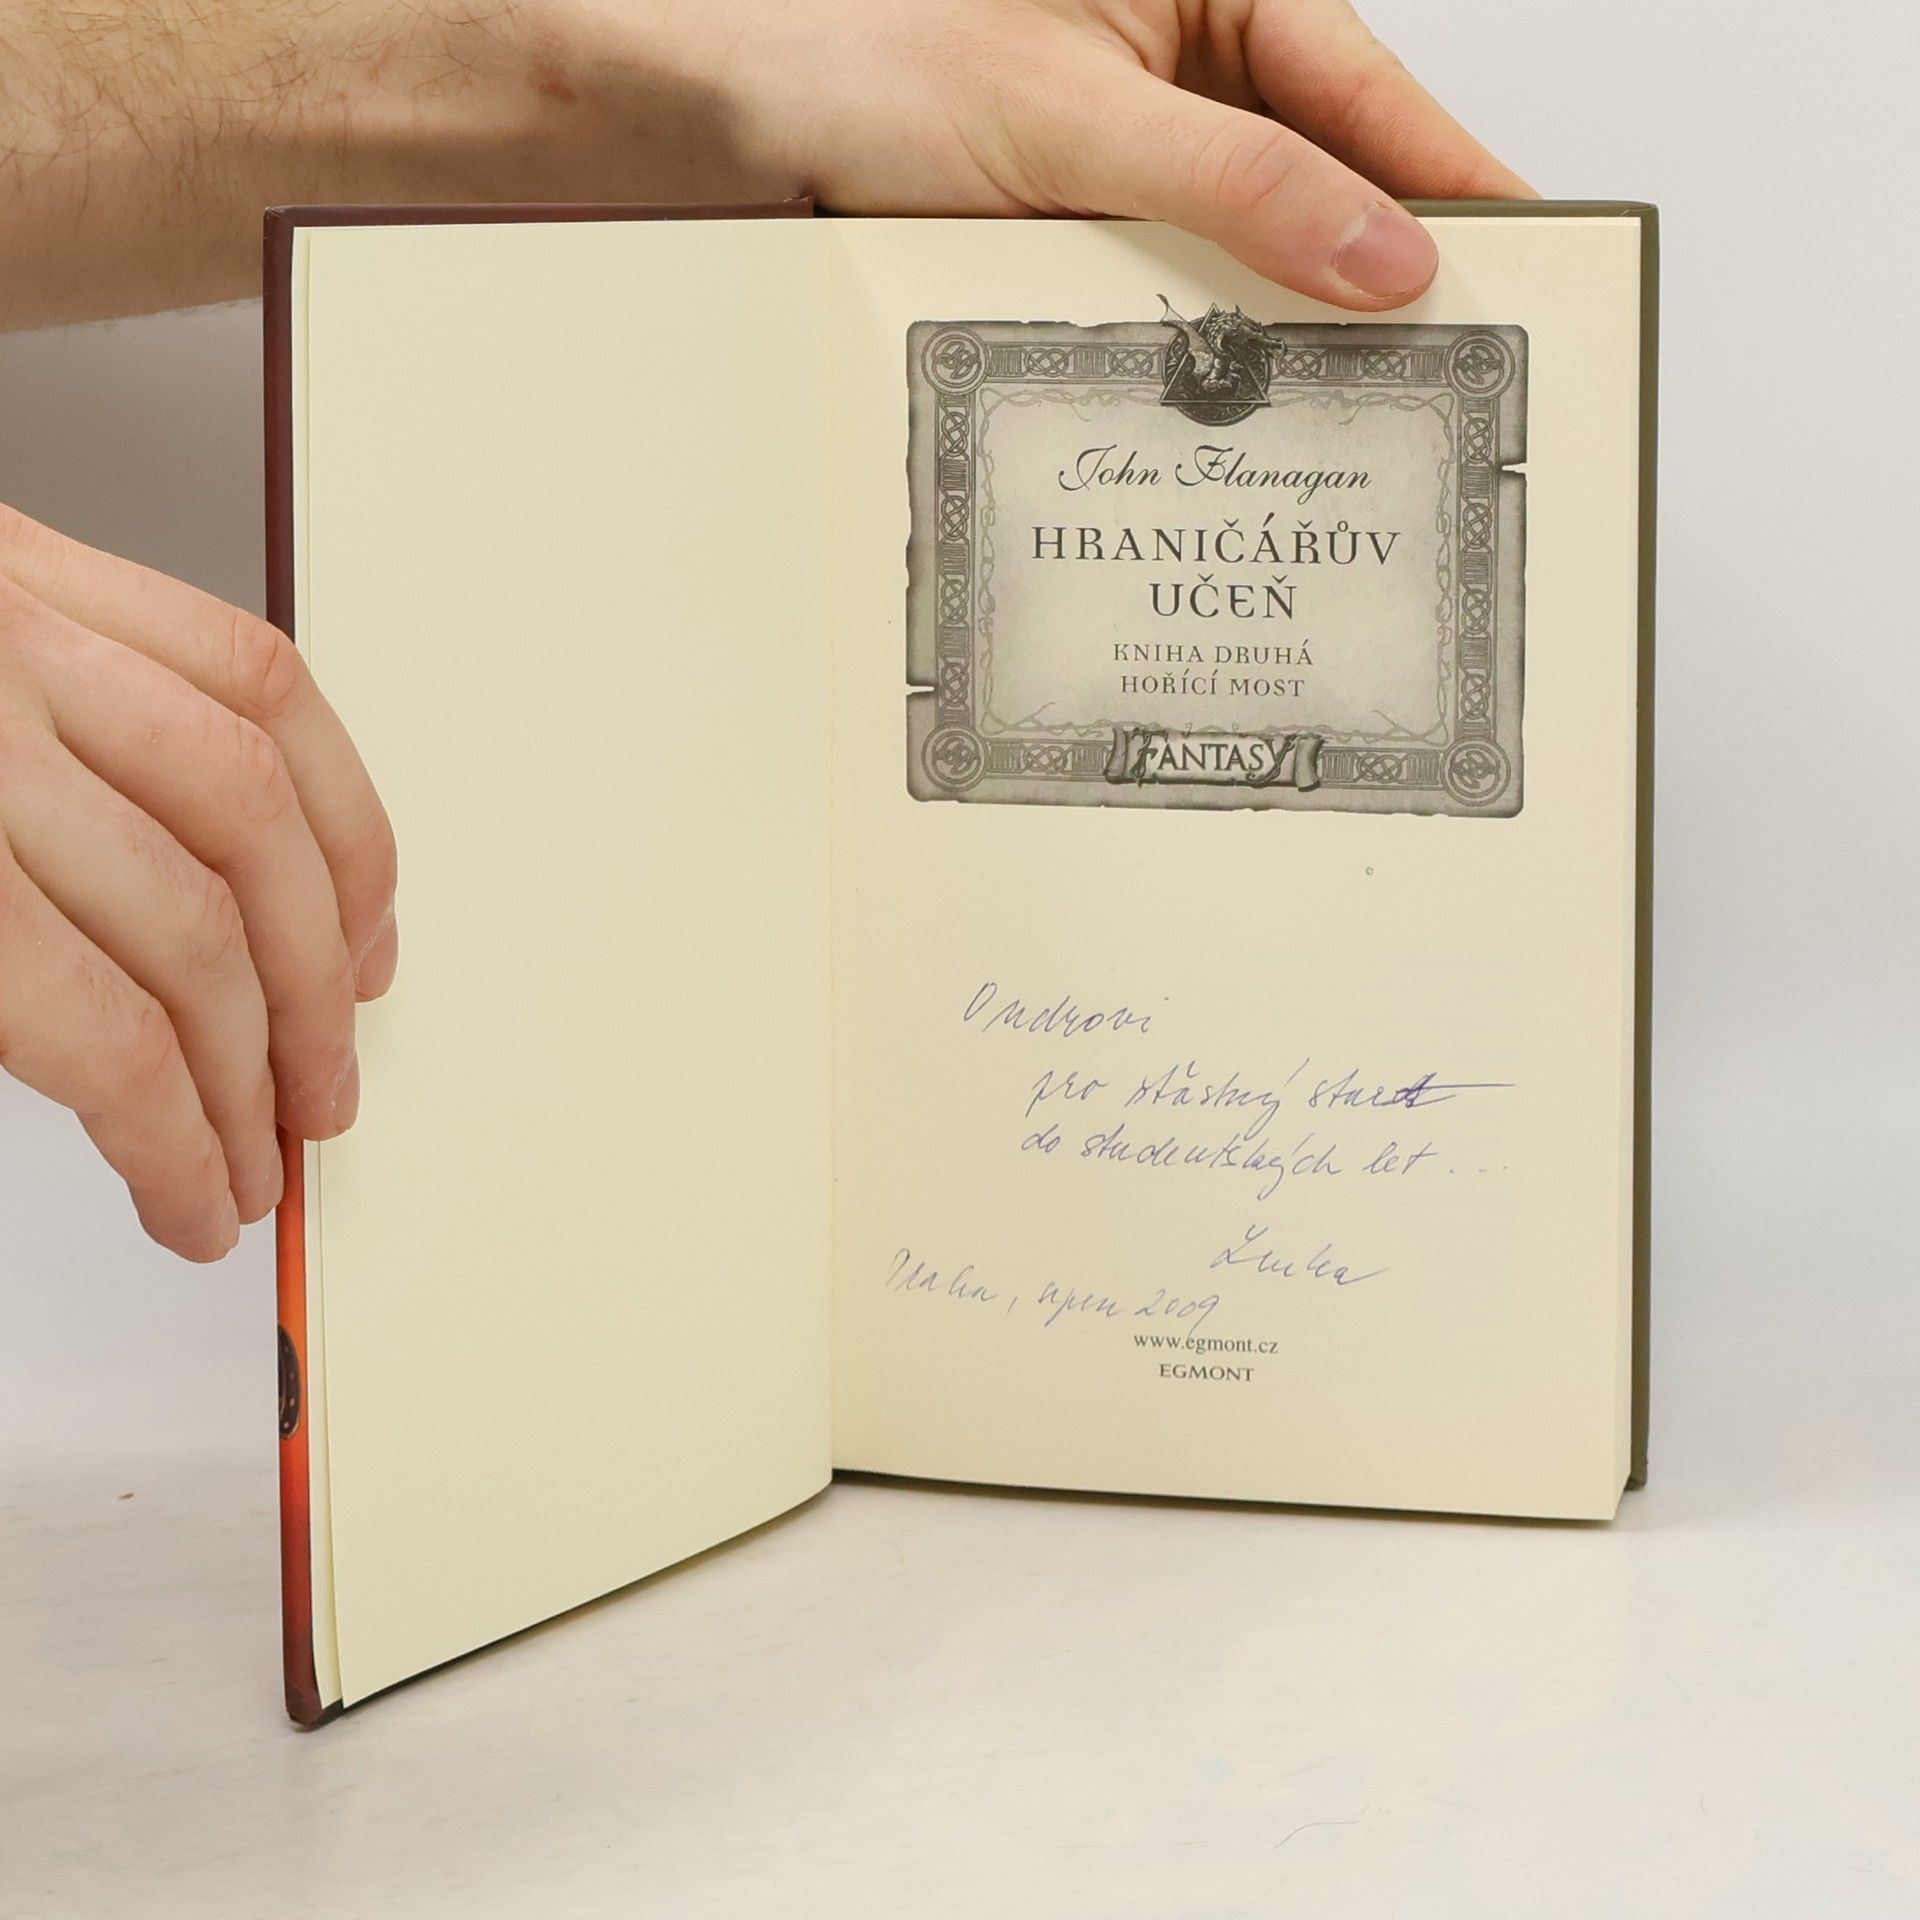 John Flanagan
HRANIČÁŘŮV
UČEŇ
KNIHA DRUHÁ
HOŘÍCÍ MOST
FANTASY
Ondrovi
pro šťastný start
do studentských let...
Lenka
Praha, srpen 2009
www.egmont.cz
EGMONT